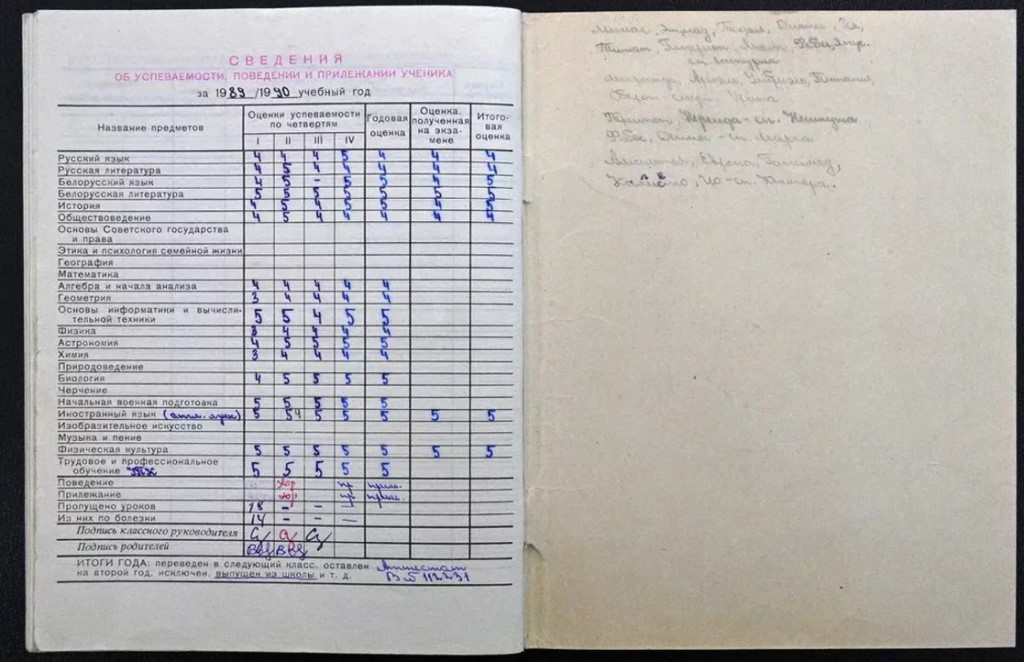 СВЕДЕНИЯ
ОБ УСПЕВАЕМОСТИ, ПОВЕДЕНИИ И ПРИЛЕЖАНИИ УЧЕНИКА
за 1989/1990 учебный год
Название предметов Оценки успеваемости по четвертям I II III IV Годовая оценка Оценка, полученная на экзамене Итоговая оценка
Русский язык 4 4 4 5 4 4 4
Русская литература 4 5 4 4 4 4 4
Белорусский язык 4 5 – 5 5 4 5
Белорусская литература 5 5 5 5 5 5 5
История 4 5 5 5 5 5 5
Обществоведение 4 5 4 4 4 4 4
Основы Советского государства
и права
Этика и психология семейной жизни
География
Математика
Алгебра и начала анализа 4 4 4 4 4
Геометрия 3 4 4 4 4
Основы информатики и вычисли-
тельной техники 5 5 4 5 5
Физика 3 4 4 4 4
Астрономия 4 5 5 5 5
Химия 3 4 4 4 4
Природоведение
Биология 4 5 5 5 5
Черчение
Начальная военная подготовка 5 5 5 5 5
Иностранный язык (англ. язык) 5 54 5 5 5 5 5
Изобразительное искусство
Музыка и пение
Физическая культура 5 5 5 5 5 5 5
Трудовое и профессиональное
обучение 5 5 5 5 5
Поведение хор пр прим.
Прилежание хор пр прим.
Пропущено уроков 18 – – –
Из них по болезни 14 – – –
Подпись классного руководителя
Подпись родителей
ИТОГИ ГОДА: переведен в следующий класс, оставлен Аттестат
на второй год, исключен, выпущен из школы и т. д. 112231
Тритон Нереида – сп. Нептуна
Фобос, Деймос – сп. Марса
Европа, Ганимед,
Каллисто, Ио – сп. Юпитера.